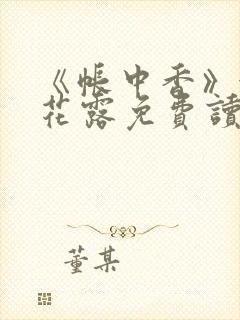 《帳中香》
花露免費讀
董某